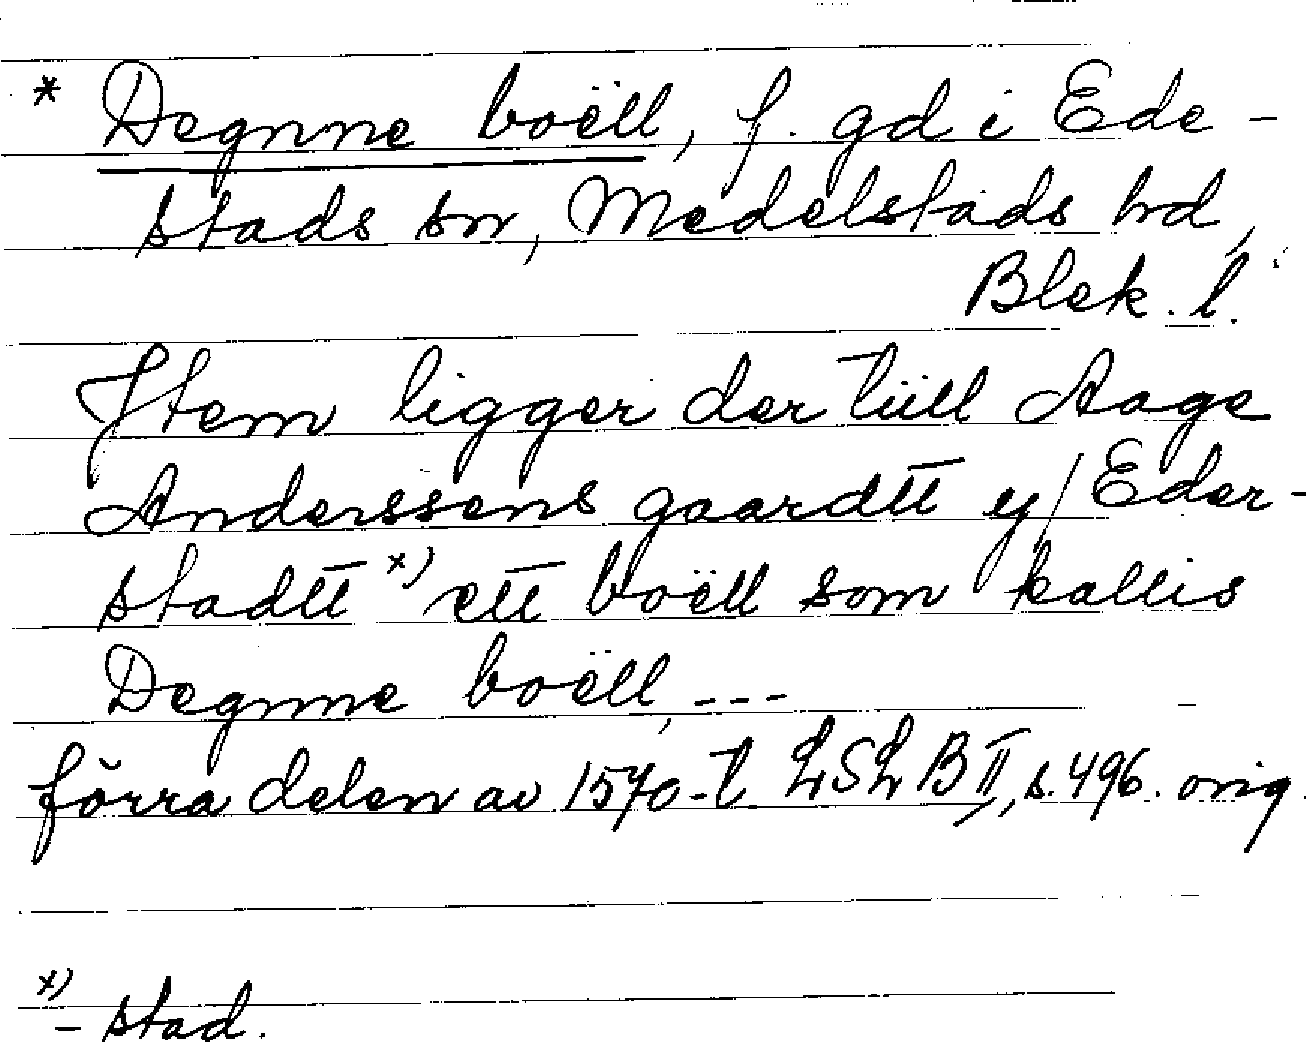 * Degnne boëll, f. gd i Ede-
stads sn, Medelstads hd,
Blek. l.
Jtem ligger der tüll Aage
Anderssens gaardtt y/ Eder-
stadtt x) ett boëll som kallis
Degnne boëll, ---
förra delen av 1570-t. LSLB II, s. 496. orig.
x) - stad.